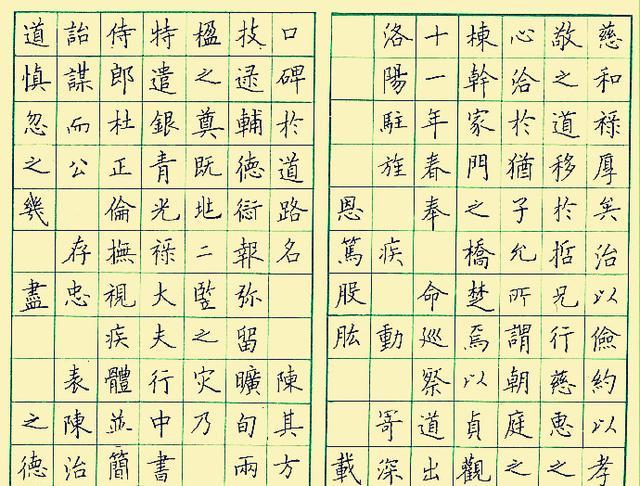 慈和禄厚矣治以儉約以孝
敬之道移於悊兄行慈惠之
心洽於猶子允所謂朝庭之
棟幹家門之橋楚焉以貞觀
十一年春奉命巡祭道出
洛陽駐旌疾動寄深
恩篤股肱載
口碑於道路名陳其方
技逯輔德衍報弥留曠旬兩
楹之奠既二之灾乃
特遣銀青光禄大夫行中書
侍郎杜正倫撫視疾體並簡
詒謀而公存忠表陳治
道慎忽之幾盡之德